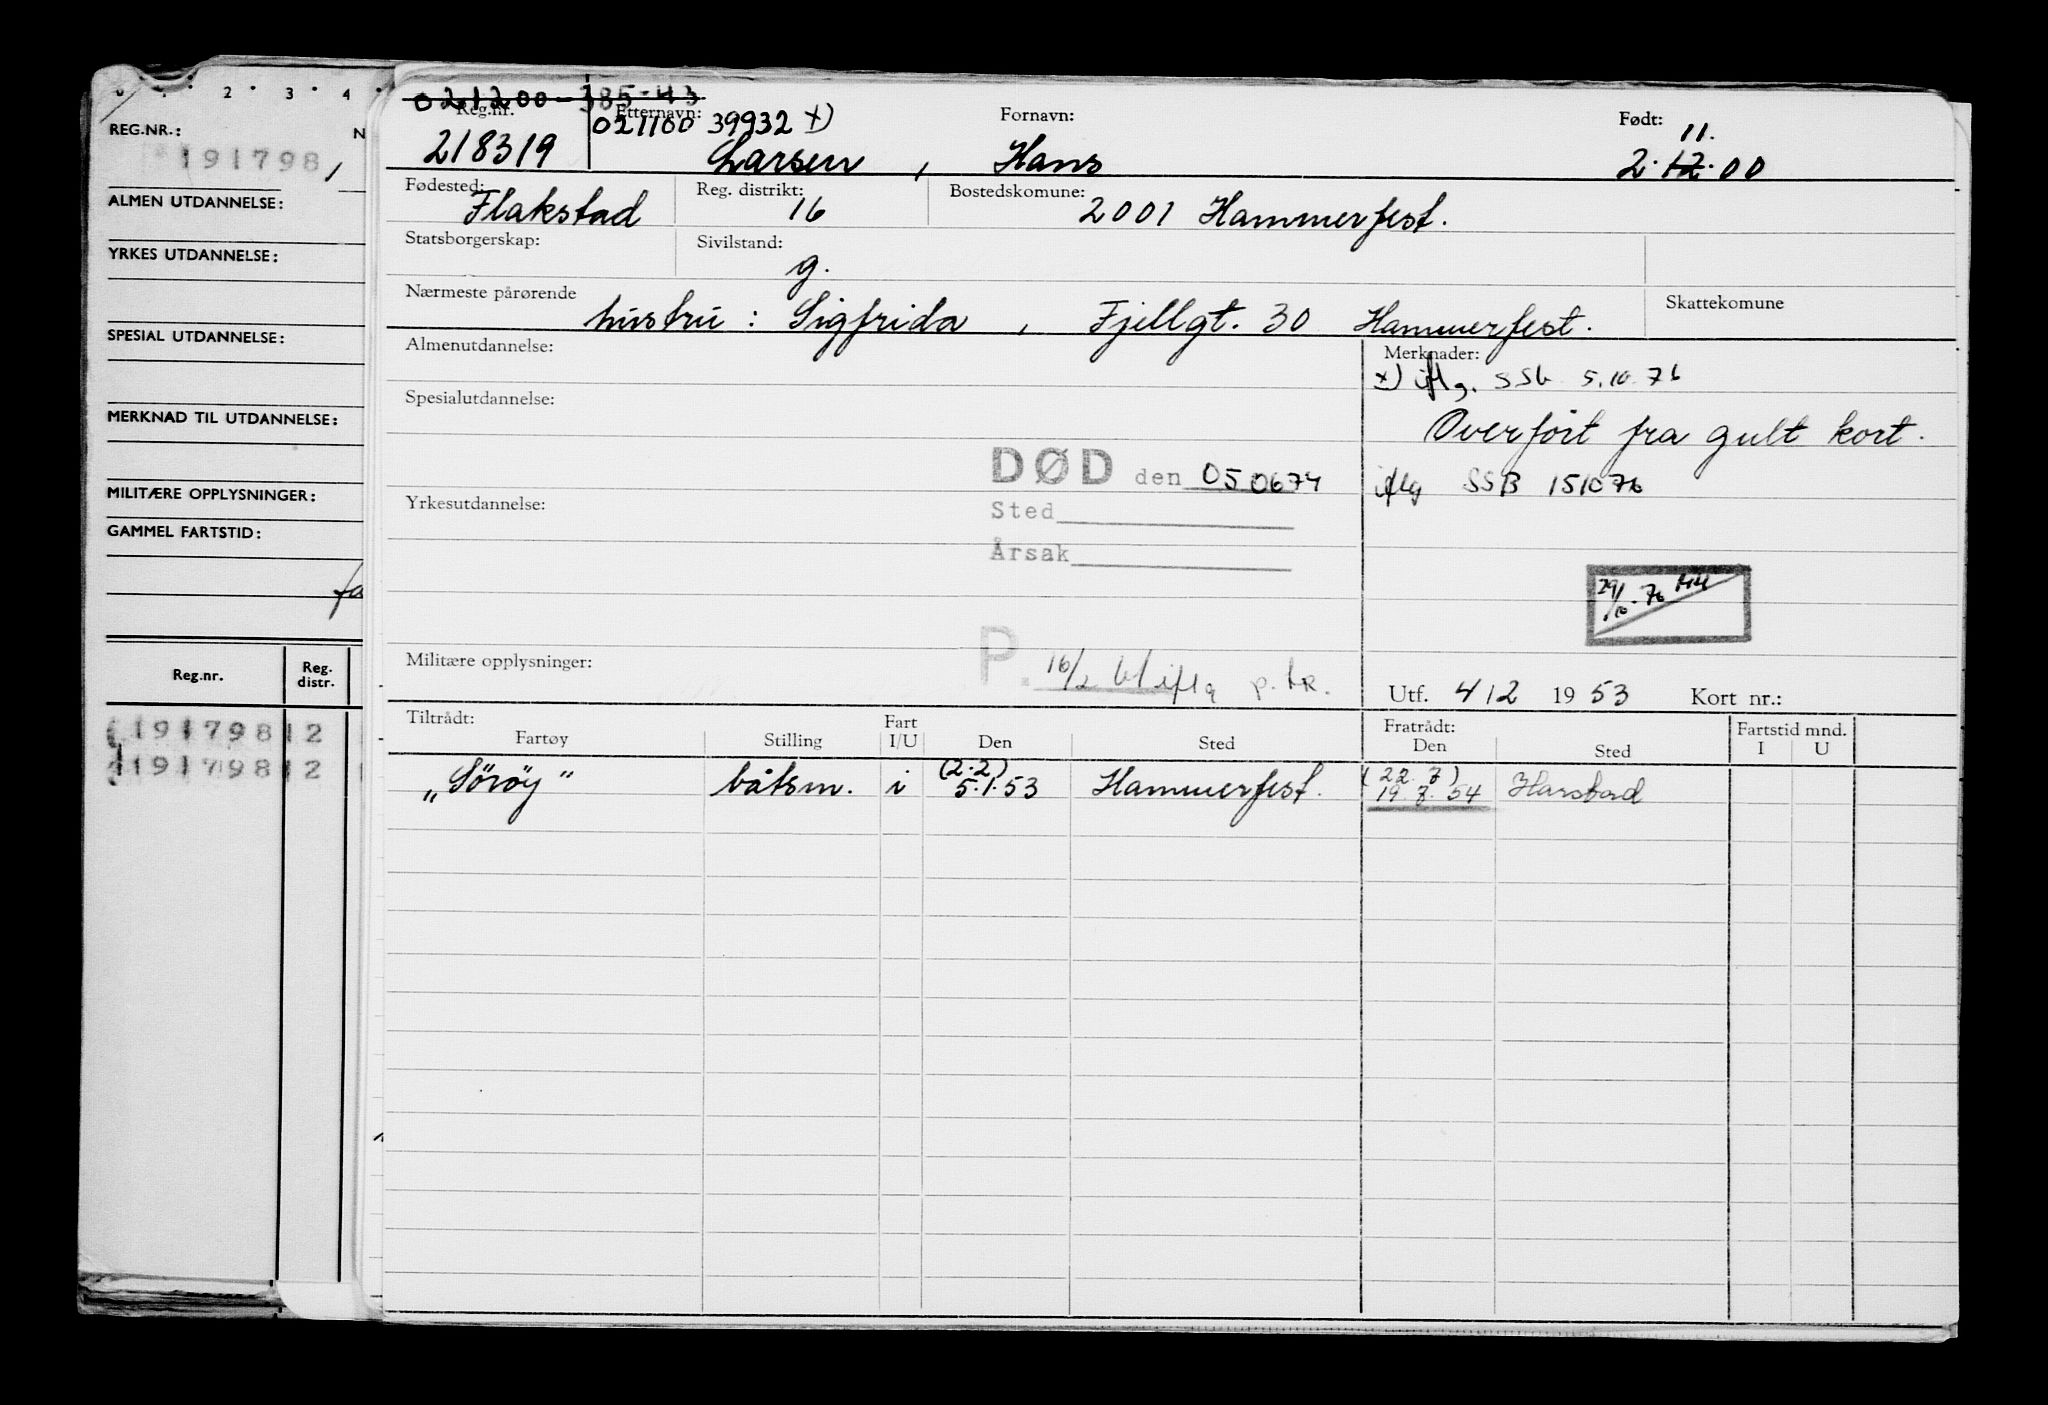 0 1 2 3 4
REG.NR.: N
191798,
ALMEN UTDANNELSE:
YRKES UTDANNELSE:
SPESIAL UTDANNELSE:
MERKNAD TIL UTDANNELSE:
MILITÆRE OPPLYSNINGER:
GAMMEL FARTSTID:
fa
Reg.nr. Reg. distr.
191798 12
191798 12
021200-385-43
Reg.nr. Etternavn: Fornavn: Født:
021100 39932 x) 11.
218319 Larsen, Hans 2.12.00
Fødested: Reg. distrikt: Bostedskomune:
Flakstad 16 2001 Hammerfest.
Statsborgerskap: Sivilstand:
g.
Nærmeste pårørende Skattekomune
hustru: Sigfrida, Fjellgt. 30 Hammerfest.
Almenutdannelse: Merknader:
x) iflg. SSb 5.10.76
Spesialutdannelse:
Overført fra gult kort.
DØD den 050674
iflg SSB 151076
Yrkesutdannelse:
Sted
Årsak
29/10-76
Militære opplysninger:
P. 16/2 61 iflg p. tr.
Utf. 4/2 1953 Kort nr.:
Tiltrådt: Fart Fratrådt: Fartstid mnd.
Fartøy Stilling I/U Den Sted Den Sted I U
(2.2) (22.7)
„Sörøy" båtsm. i 5.1.53 Hammerfest. 19.7.54 Harstad